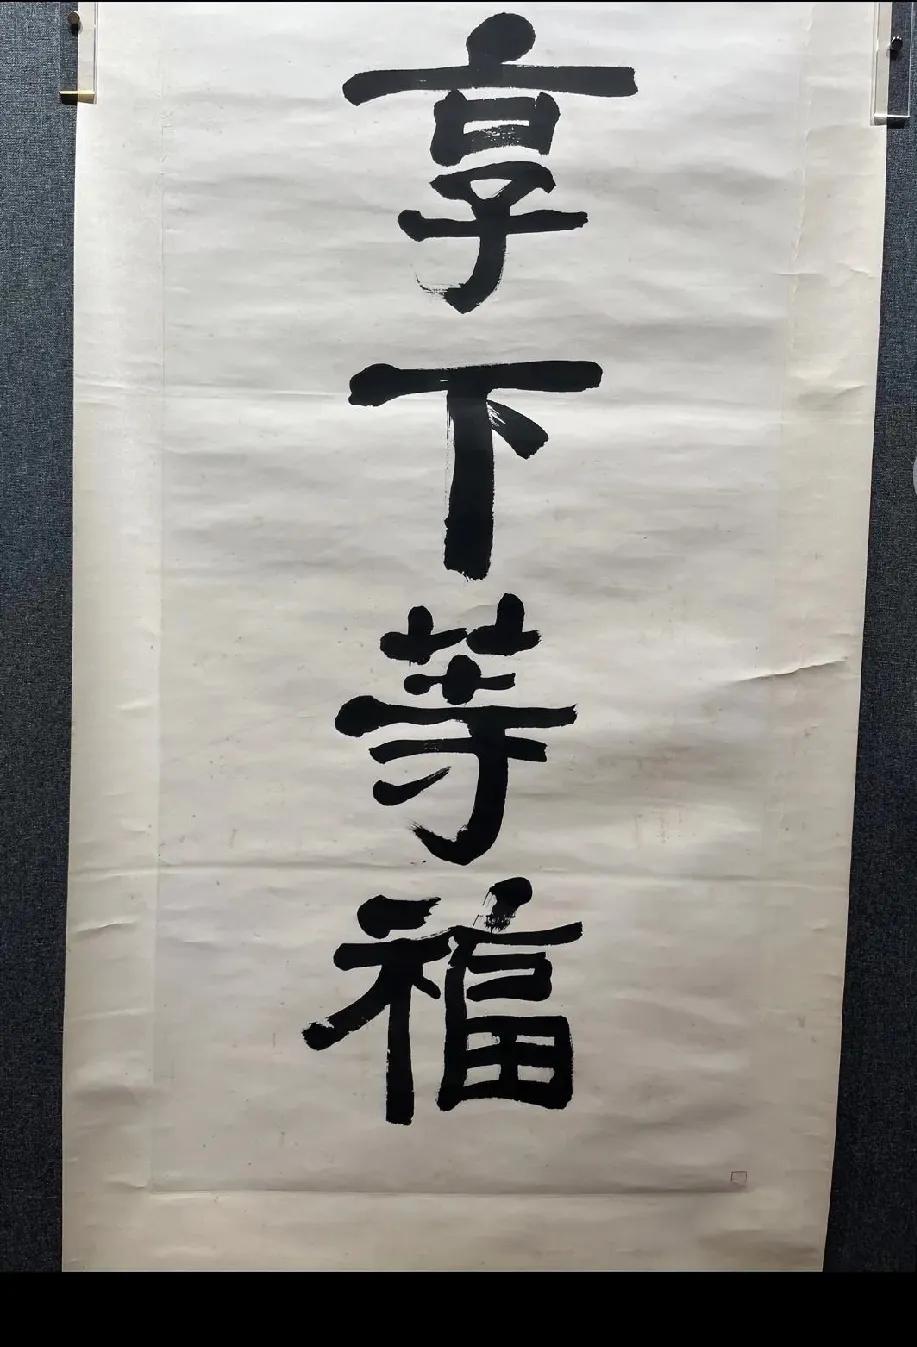 享下等福